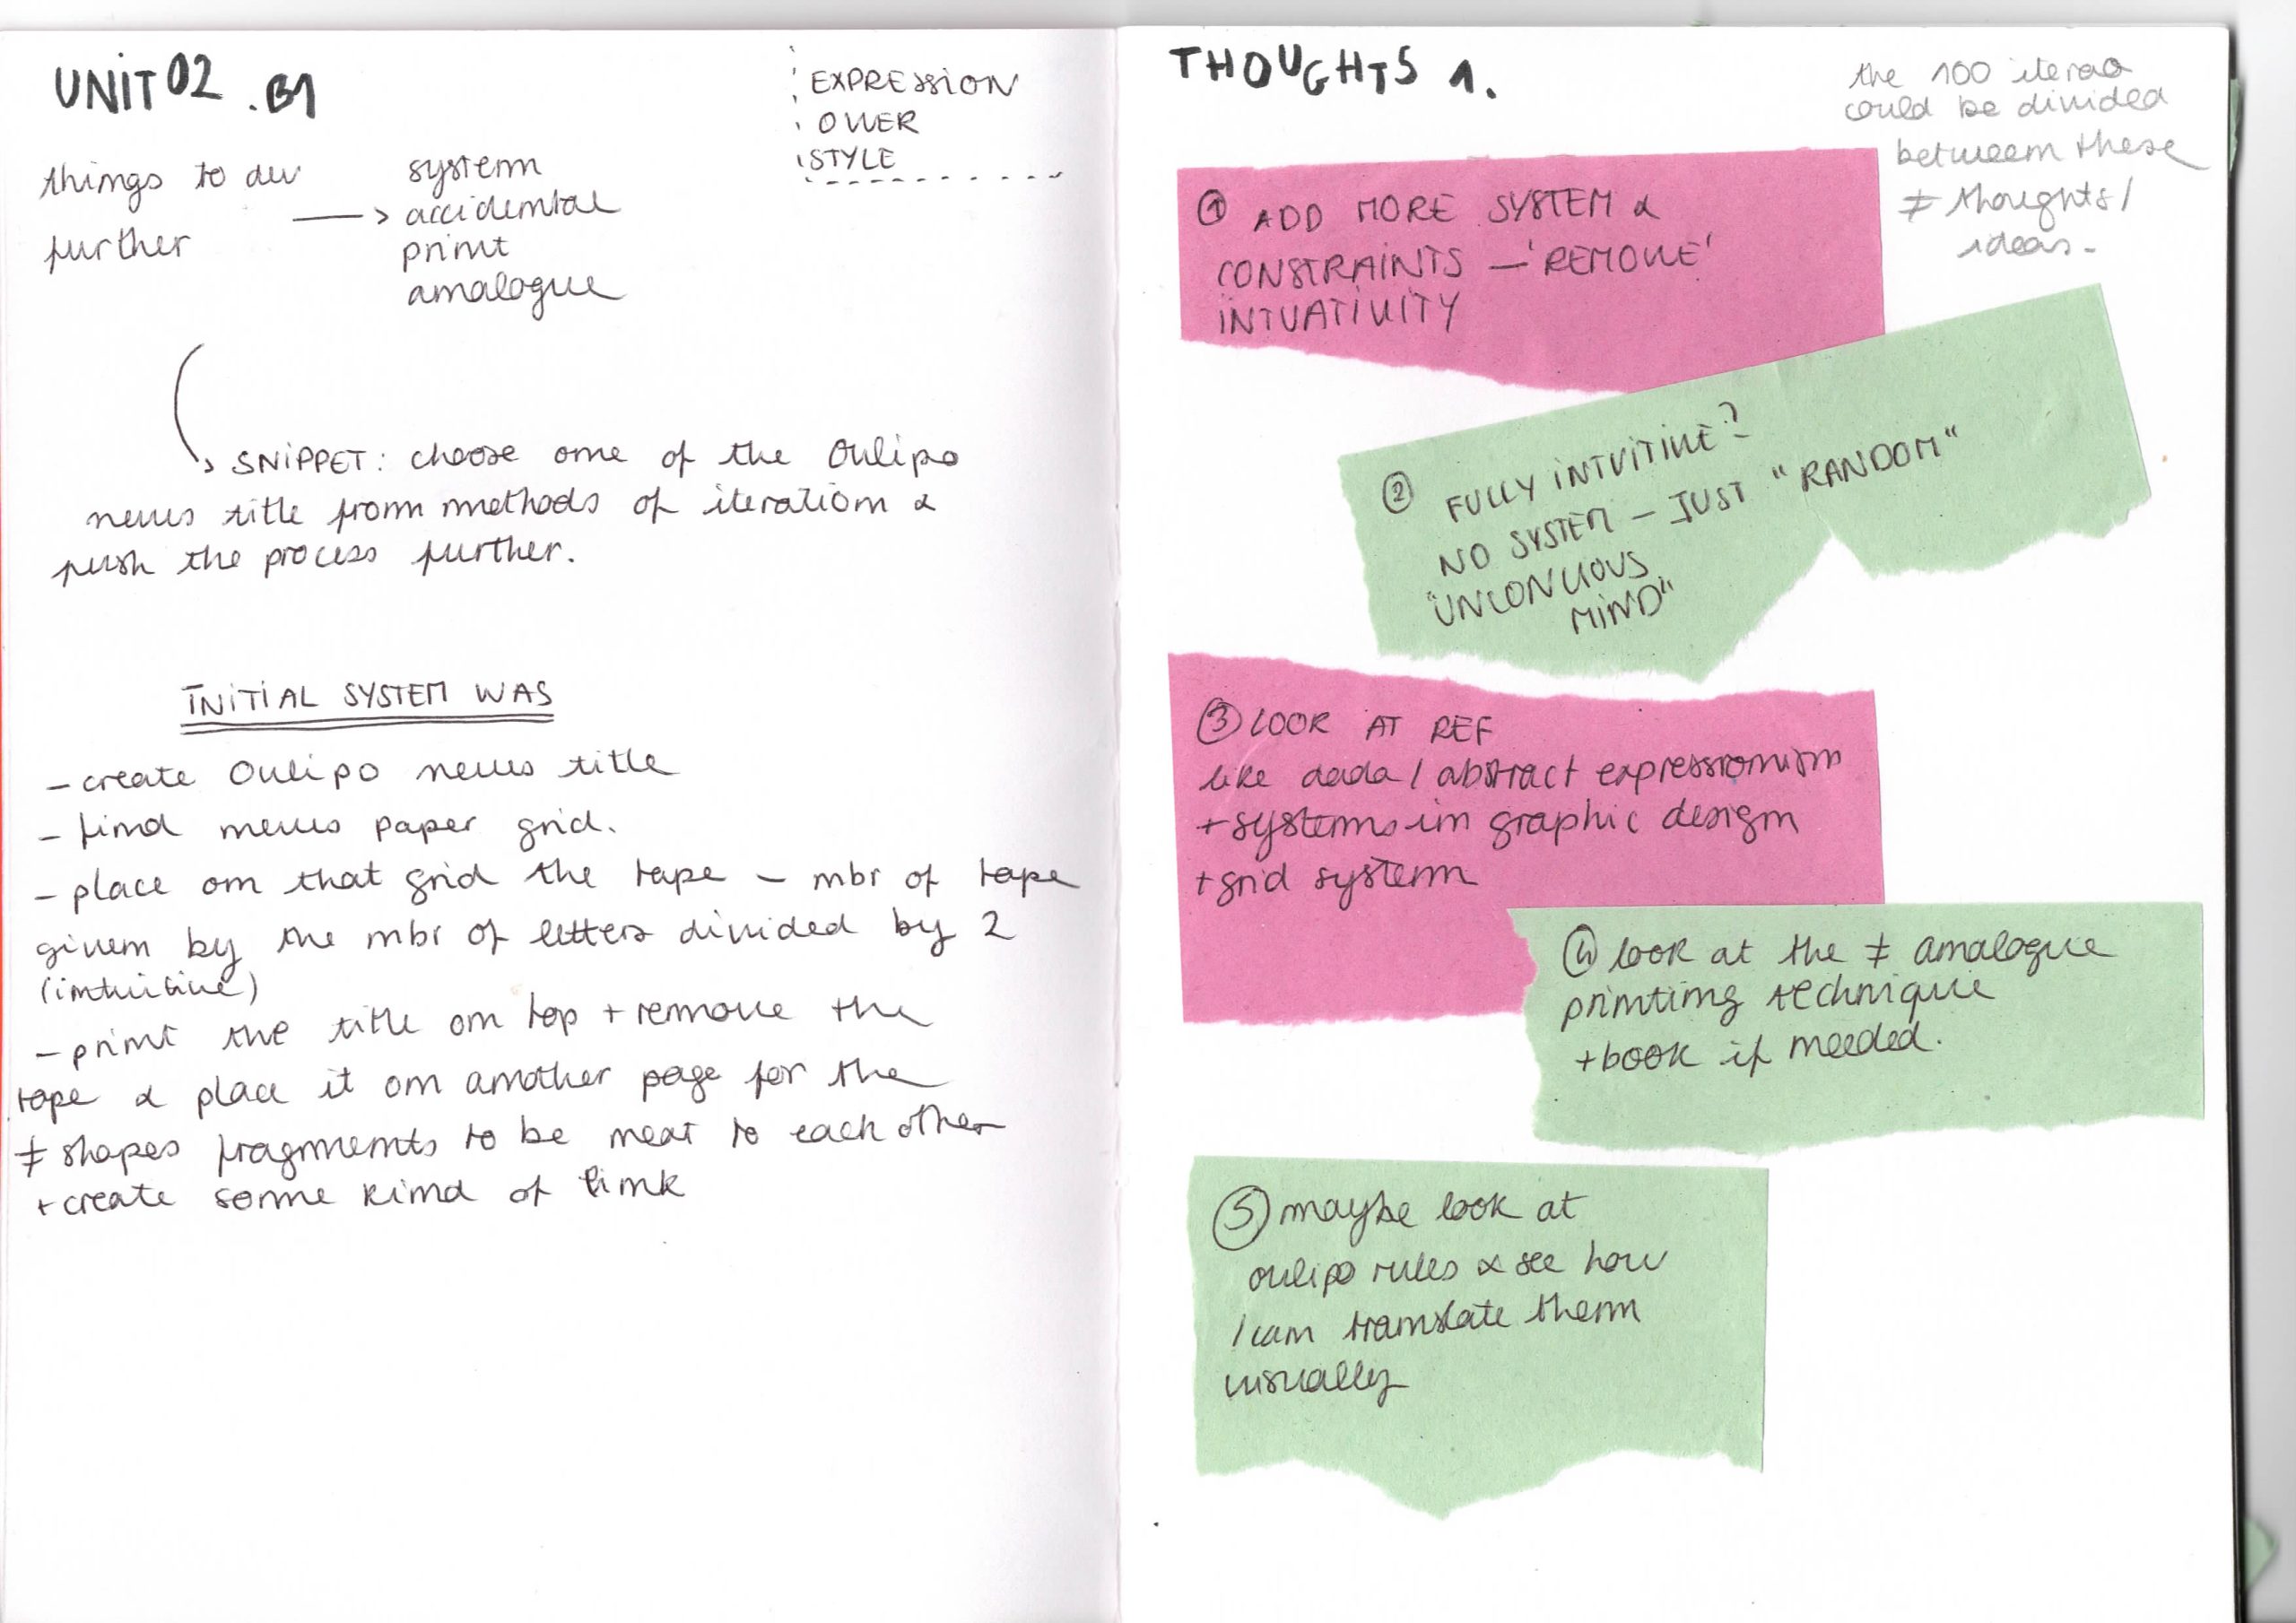 UNIT 02 . B1
EXPRESSION
OVER
STYLE
things to dev
further
system
accidental
print
analogue
SNIPPET: choose one of the Oulipo
news title from methods of iteration &
push the process further.
INITIAL SYSTEM WAS
- create Oulipo news title
- find news paper grid.
- place on that grid the tape - nbr of tape
given by the nbr of letters divided by 2
(intuitive)
- print the title on top + remove the
tape & place it on another page for the
≠ shapes fragments to be next to each other
+ create some kind of link
THOUGHTS 1.
the 100 iterao
could be divided
between these
≠ thoughts /
ideas -
① ADD MORE SYSTEM &
CONSTRAINTS - 'REMOVE'
INTUATIVITY
② FULLY INTUITIVE?
NO SYSTEM - JUST "RANDOM"
"UNCONCIOUS
MIND"
③ LOOK AT REF
like dada / abstract expressionism
+ systems in graphic design
+ grid system
④ look at the ≠ analogue
printing technique
+ book if needed.
⑤ maybe look at
oulipo rules & see how
I can translate them
visually